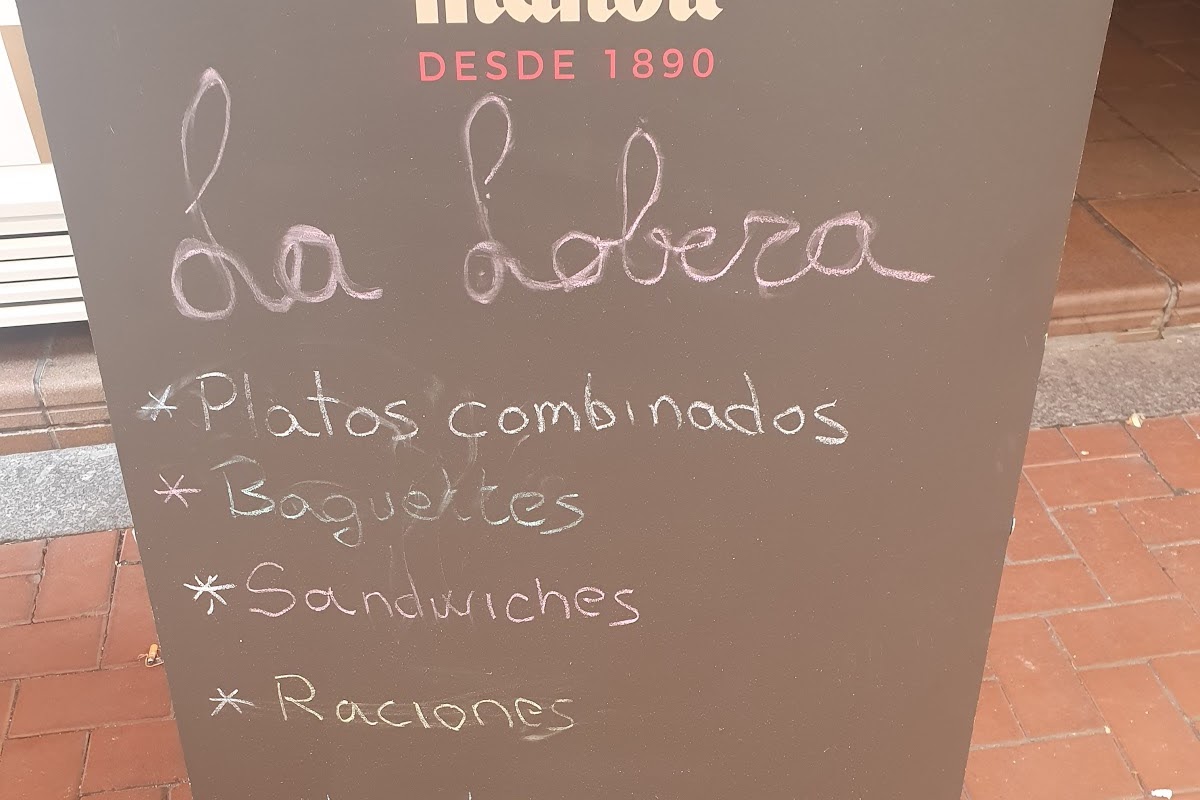 DESDE 1890
La Lobera
* Platos combinados
* Baguettes
* Sandwiches
* Raciones